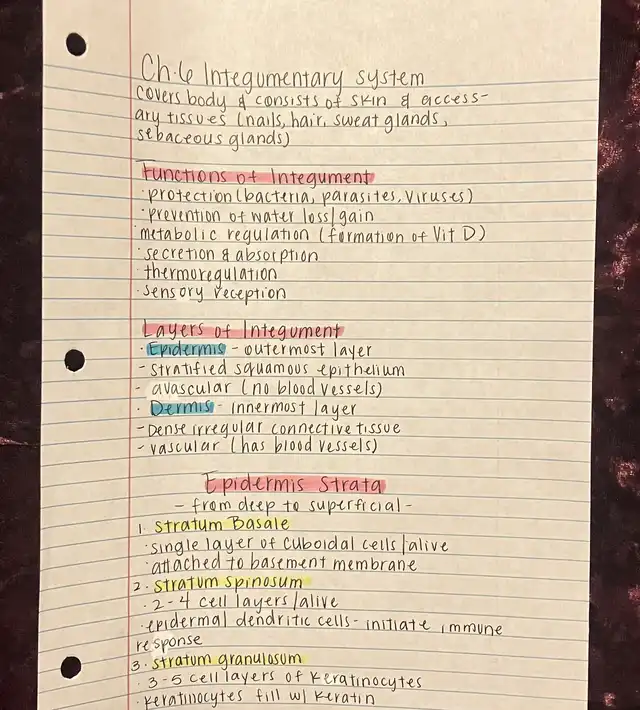 Ch.6 Integumentary system
covers body & consists of skin & access-
ary tissues (nails, hair, sweat glands,
sebaceous glands)
Functions of Integument
· protection (bacteria, parasites, viruses)
· prevention of water loss/gain
· metabolic regulation (formation of Vit D)
· secretion & absorption
· thermoregulation
· sensory reception
Layers of Integument
· Epidermis - outermost layer
- stratified squamous epithelium
- avascular (no blood vessels)
· Dermis - innermost layer
- Dense irregular connective tissue
- vascular (has blood vessels)
Epidermis Strata
- from deep to superficial -
1. Stratum Basale
· single layer of cuboidal cells/alive
· attached to basement membrane
2. stratum spinosum
· 2-4 cell layers/alive
· epidermal dendritic cells - initiate immune
response
3. stratum granulosum
· 3-5 cell layers of keratinocytes
· keratinocytes fill w/ keratin